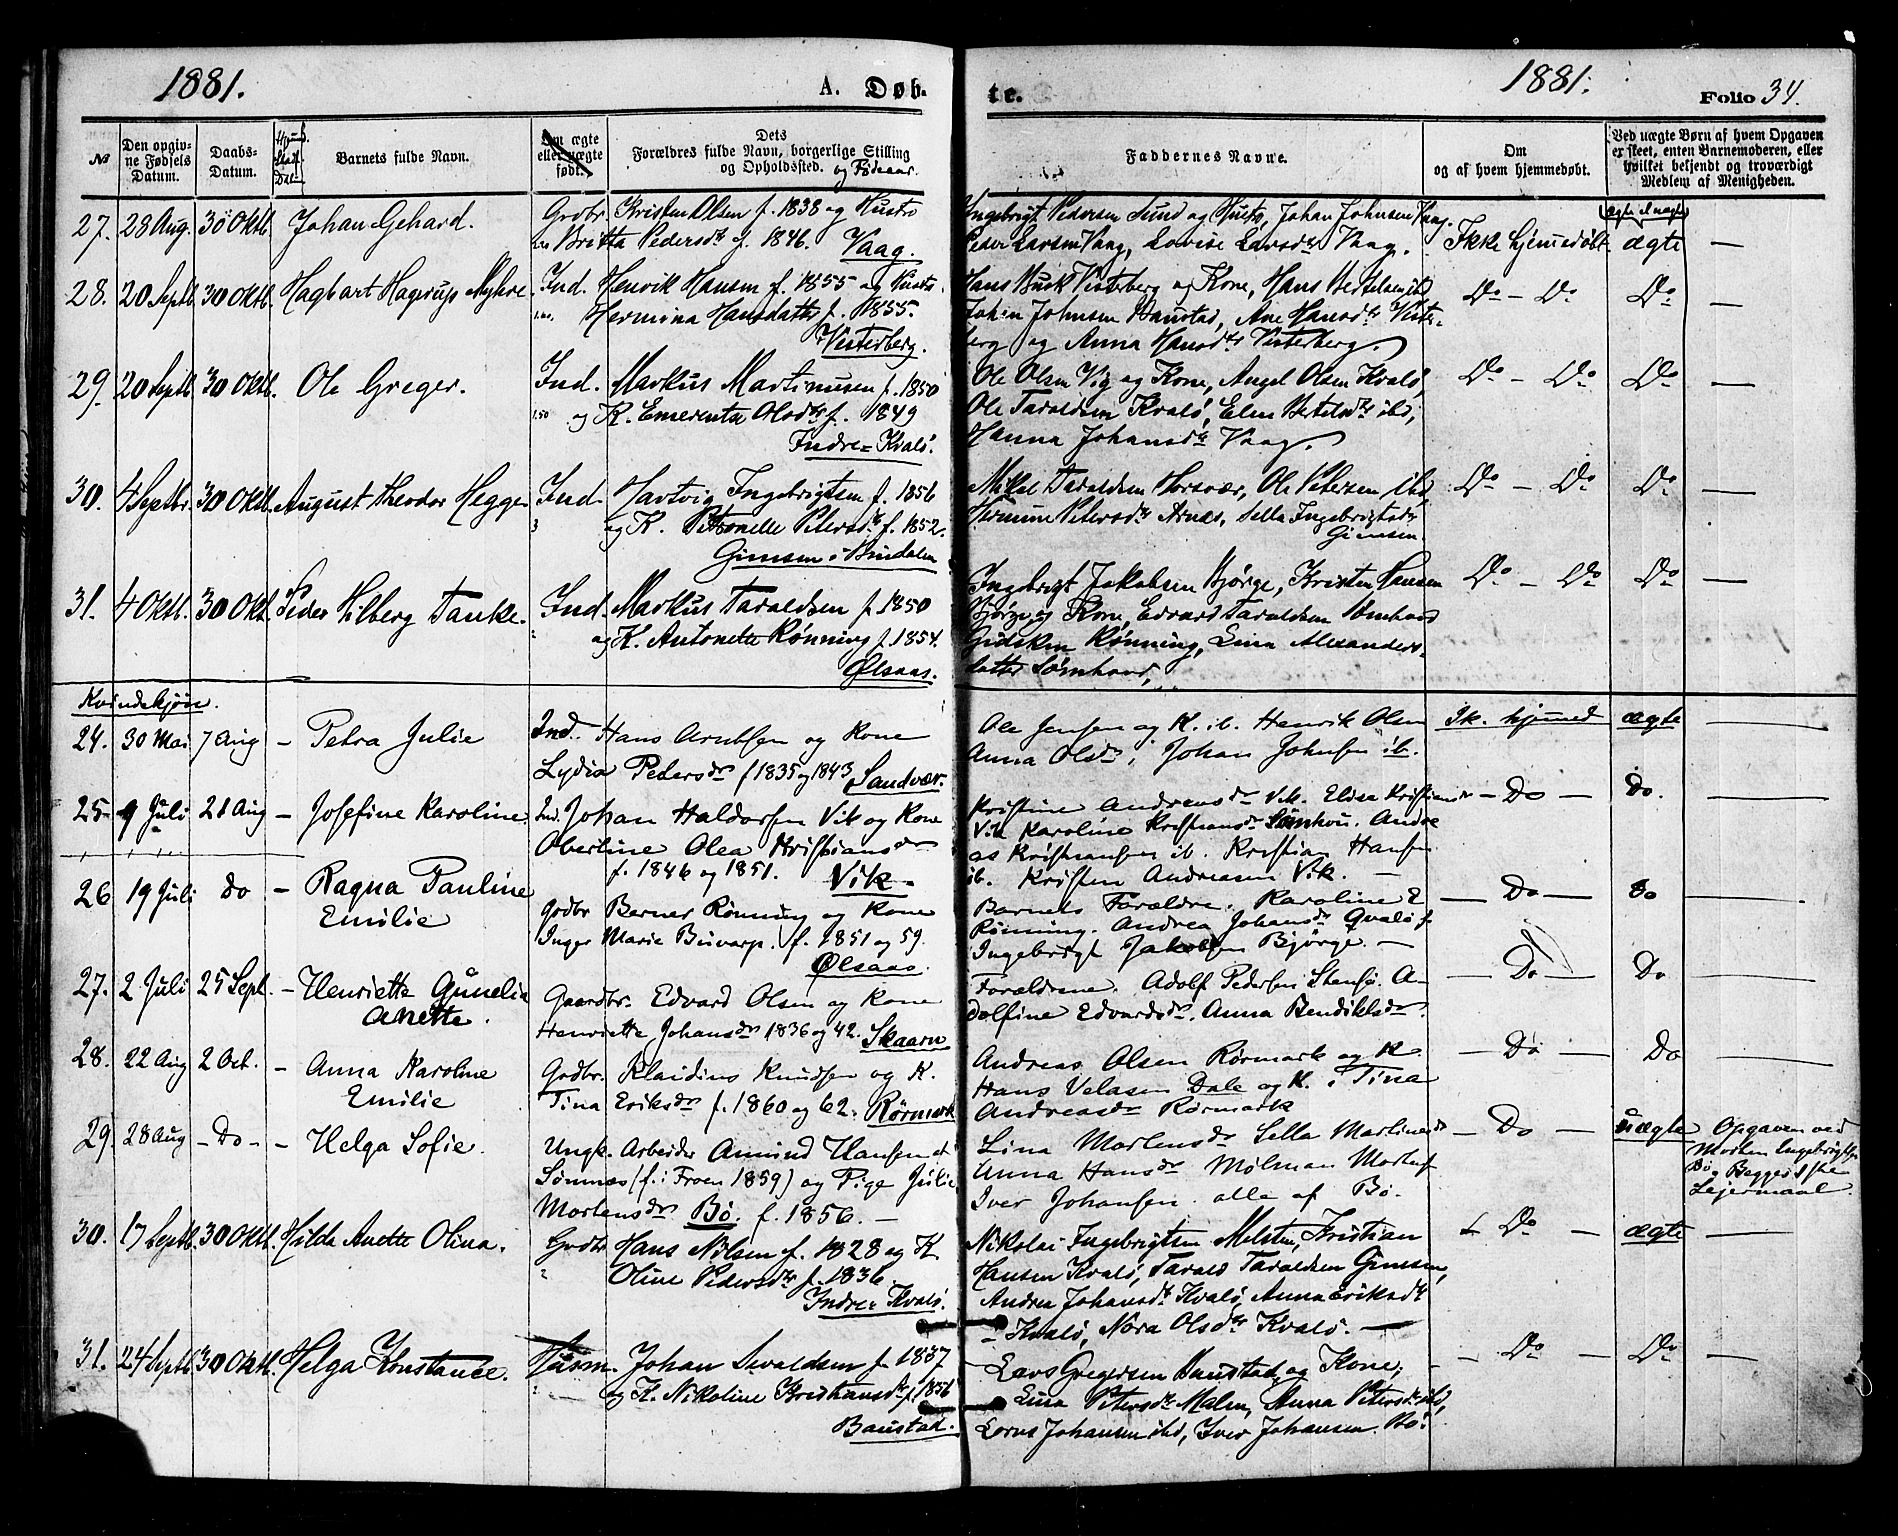 1881.
A. Døb-
№
Den opgiv-
ne Fødsels
Datum.
Daabs-
Datum.
Barnets fulde Navn.
Om ægte
eller uægte
født.
Dets
Forældres fulde Navn, borgerlige Stilling
og Opholdssted. og Fødeaar.
27. 28 Aug. 30 Oktb. Johan Gehard. Grdbr. Kristen Olsen f. 1838 og Hustro
Britta Pedersdr f. 1846. Vaag.
28. 20 Septb. 30 Oktb. Hagbart Hagrup Myhre Ind. Henrik Hansen f. 1855 og Hustro
Hermina Hansdatter f. 1855.
Visterberg.
29. 20 Septb. 30 Oktb. Ole Greger. Ind. Markus Martinusen f. 1850
1.50 og K. Emerentse Olsdtr f. 1849
Indre-Kvalø.
30. 4 Septbr. 30 Oktb. August Theodor Hegge Ind. Hartvig Ingebrigtsen f. 1856
og K. Petronelle Petersdtr f. 1852.
Gimsen i Bindalen
31. 4 Oktb. 30 Okt. Peder Hilberg Tanke. Ind. Markus Taraldsen f. 1850
og K. Antonette Rønning f. 1854.
Ølsaas.
Kvindekjøn.
24. 30 Mai 7 Aug - Petra Julie Ind. Hans Arntsen og Kone
Lydia Pedersdr f 1835 og 1843 Sandvær.
25 9 Juli 21 Aug - Josefine Karoline. Ind. Johan Haldorsen Vik og Kone
Oberline Olea Kristiansdr
f. 1846 og 1851. Vik.
26 19 Juli Do - Ragna Pauline Grdbr Berner Rønning og Kone
Emilie Inger Marie Buvarp. f. 1851 og 59.
Ølsaas.
27. 2 Juli 25 Sept. - Henriette Gunelia Gaardbr. Edvard Olsen og Kone
Anette. Henriette Johansdr 1836 og 42. Skaarn
28. 22 Aug 2 Oct. - Anna Karoline Grdbr. Klaidius Knudsen og K.
Emilie Tina Eriksdr f. 1860 og 62. Rørmark
29. 28 Aug - Do - - Helga Sofie. Ungk. Arbeider Amund Hansen
Sømnæs (f. i Froen 1859) og Pige Julie
Mortensdr Bø. f. 1856. -
30. 17 Septb. 30 Oktb. Hilda Anette Olina. Grdbr Hans Nilsen f. 1828 og K
Oline Pedersdtr f. 1836.
Indre Kvalø.
31. 24 Septb 30 Oktb. Helga Konstance. Husm. Johan Sivaldsen f. 1837
og K. Nikoline Kristiansdtr f. 1856
Baustad.
te.
1881.
Folio 34.
Faddernes Navne.
Om
og af hvem hjemmedøbt.
Ved uægte Børn af hvem Opgaven
er skeet, enten Barnemoderen, eller
hvilket bekjendt og troværdigt
Medlem af Menigheden.
ægte el. uægte
Ingebrigt Pedersen Sund og Hustro, Johan Johnsen Vaag,
Peder Larsen Vaag, Lovise Larsdtr Vaag. Ikke hjemmedøbt ægte —
Hans Busk Visterberg og Kone, Hans Bertelsen ibd Do - Do Do —
Johan Johnsen Baustad, Ane Hansdtr Vister-
berg og Anna Hansdtr Visterberg.
Ole Olsen Vig og Kone, Angel Olsen Kvalø, Do - Do Do —
Ole Taraldsen Kvalø, Elen Betelsdtr ibd,
Hanna Johansdtr Vaag.
Mikal Taraldsen Horsvær, Ole Petersen ibd, Do - Do Do —
Hermine Petersdtr Arnæs, Sella Ingebrigtsdr
Gimsen.
Ingebrigt Jakobsen Bjørge, Kristen Hansen Do - Do Do —
Bjørge og Kone, Edvard Taraldsen Sømhovd
Gidsken Rønning, Lina Alexanders-
datter Sømhovd,
Ole Jensen og K. ib. Henrik Olsen Ik. hjemmed ægte —
Anna Olsdr, Johan Johnsen ib.
Kristine Andreasdr Vik. Elisa Kristiansdr - Do - Do. —
Vik Karoline Kristiansdr Sømhov. Andre
as Kristiansen ib. Kristian Hansen
ib. Kristen Andreasen Vik. —
Barnets Forældre. Karoline E — Do — Do —
Rønning. Andrea Johansdr Qvalø
Ingebrigt Jakobsen Bjørge. —
Forældrene. Adolf Pedersen Stensø. A- — Do — Do —
dolfine Edvardsdr. Anna Bendiktsdr.
Andreas Olsen Rørmark og K. — Do — Do —
Hans Velasen Dale og K. Tina
Andreasdr Rørmark
Lina Mortensdr Sella Martinusdr — Do — Uægte Opgaven ved
Anna Hansdr Mølman Morten Ingebrigtsen
Iver Johansen. alle af Bø. Bø. Begges 1ste
Leiermaal.
Nikolai Ingebrigtsen Melsten, Kristian Do — ægte —
Hansen Kvalø, Tarald Taraldsen Gimsen,
Andrea Johansdtr Kvalø, Anna Eriksdtr
Kvalø, Nora Olsdtr Kvalø. —
Lars Gregersen Baustad og Kone, — Do — Do —
Lina Petersdtr Malen, Anna Petersdtr ibd,
Lorns Johansen ibd, Iver Johansen Bø.